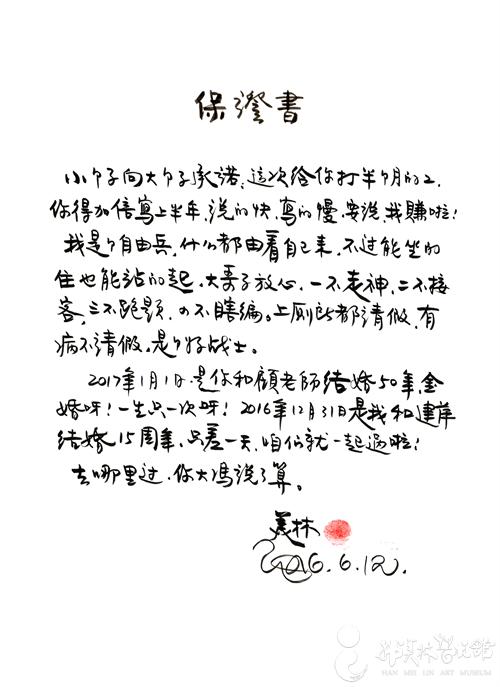 保證書
小个子向大个子承诺，这次给你打半个月的工，
你得加倍寫上半年，说的快，寫的慢，要说，我賺啦！
我是个自由兵，什么都由着自己来，不过能坐的
住也能站的起，大哥子放心，一不走神，二不接
客，三不跑题，四不瞎编。上厕所都请假，有
病不请假，是个好战士。
2017年1月1日是你和顧老師结婚50年，金
婚呀！一生只一次呀！2016年12月31日是我和建萍
结婚15周年，只差一天，咱们就一起過啦！
去哪里过，你大馮说了算。
美林
2016.6.12.
韩美林艺术馆
HAN MEI LIN ART MUSEUM